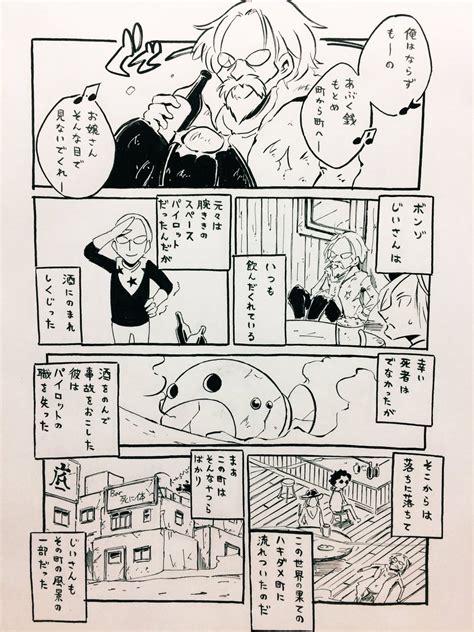 俺はならず
もーの
あぶく銭
もとめ
町から町へー
お嬢さん
そんな目で
見ないでくれー
ボンゾ
じいさんは
いつも
飲んだくれている
元々は
腕ききの
スペース
パイロット
だったんだが
酒にのまれ
しくじった
幸い
死者は
でなかったが
酒をのんで
事故をおこした
彼は
パイロットの
職を失った
そこからは
落ちに落ちて
この世界の果ての
ハキダメ町に
流れついたのだ
まぁ
この町は
そんなやつら
ばかり
Bar
死に体
じいさんも
その町の風景の
一部だった